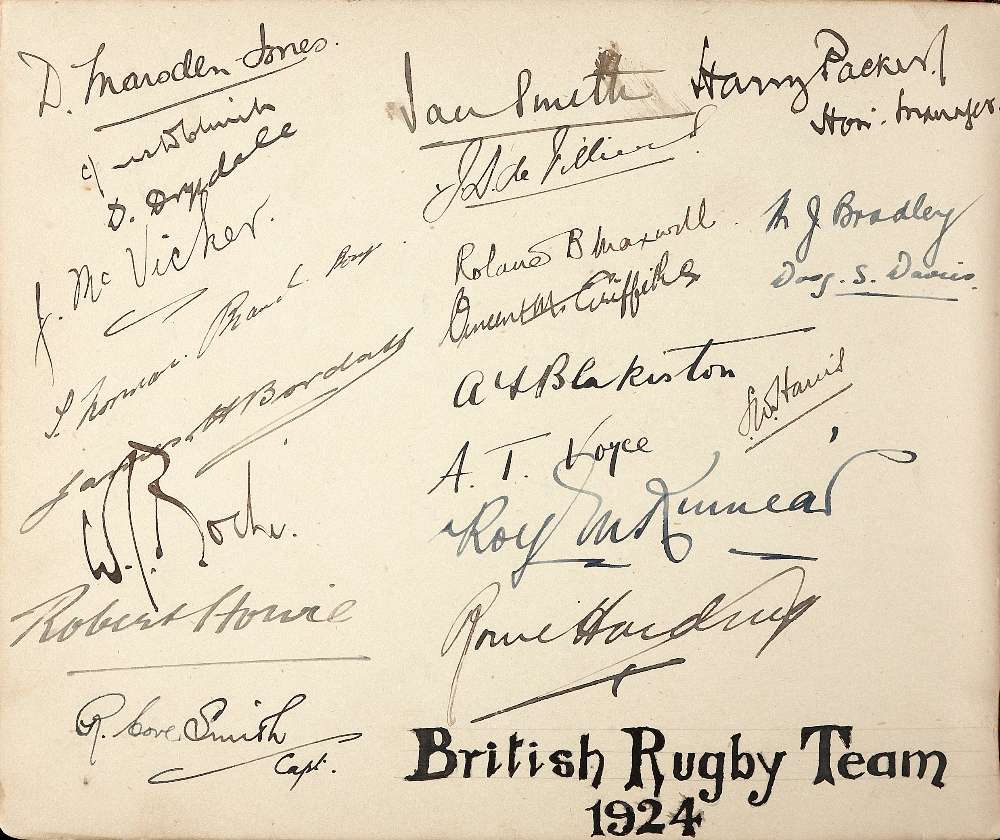 D. Marsden-Jones.
D. Drysdale
J. McVicker.
S. Norman
James H Bordass
W. J. Roche.
Robert Howie
R. Cove Smith
Capt.
Ian Smith
Harry Packer.
Hon. Manager.
J. S. de Villiers
Roland B Maxwell
Vincent M. Griffiths
M J Bradley
Doug. S. Davies.
A F Blakiston
S. W. Harris
A. T. Voyce
Roy M Kinnear
Rowe Harding
British Rugby Team
1924